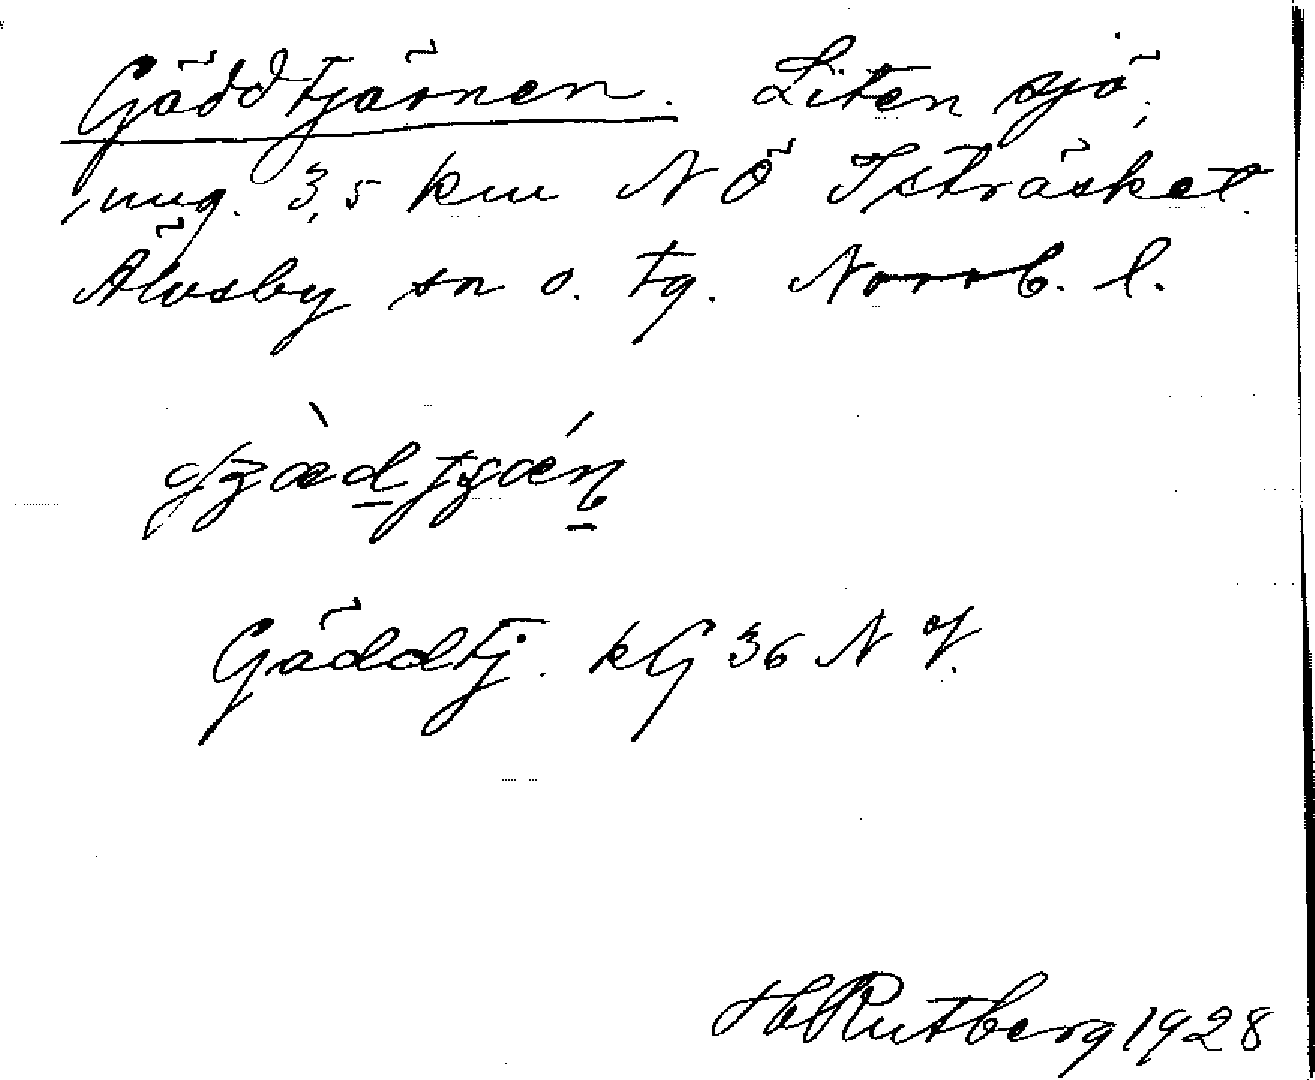 Gäddtjärnen. Liten sjö,
ung. 3,5 km NÖ Isträsket.
Älvsby sn o. tg. Norrb. l.
Gäddtj. kG 36 NV.
H Rutberg 1928